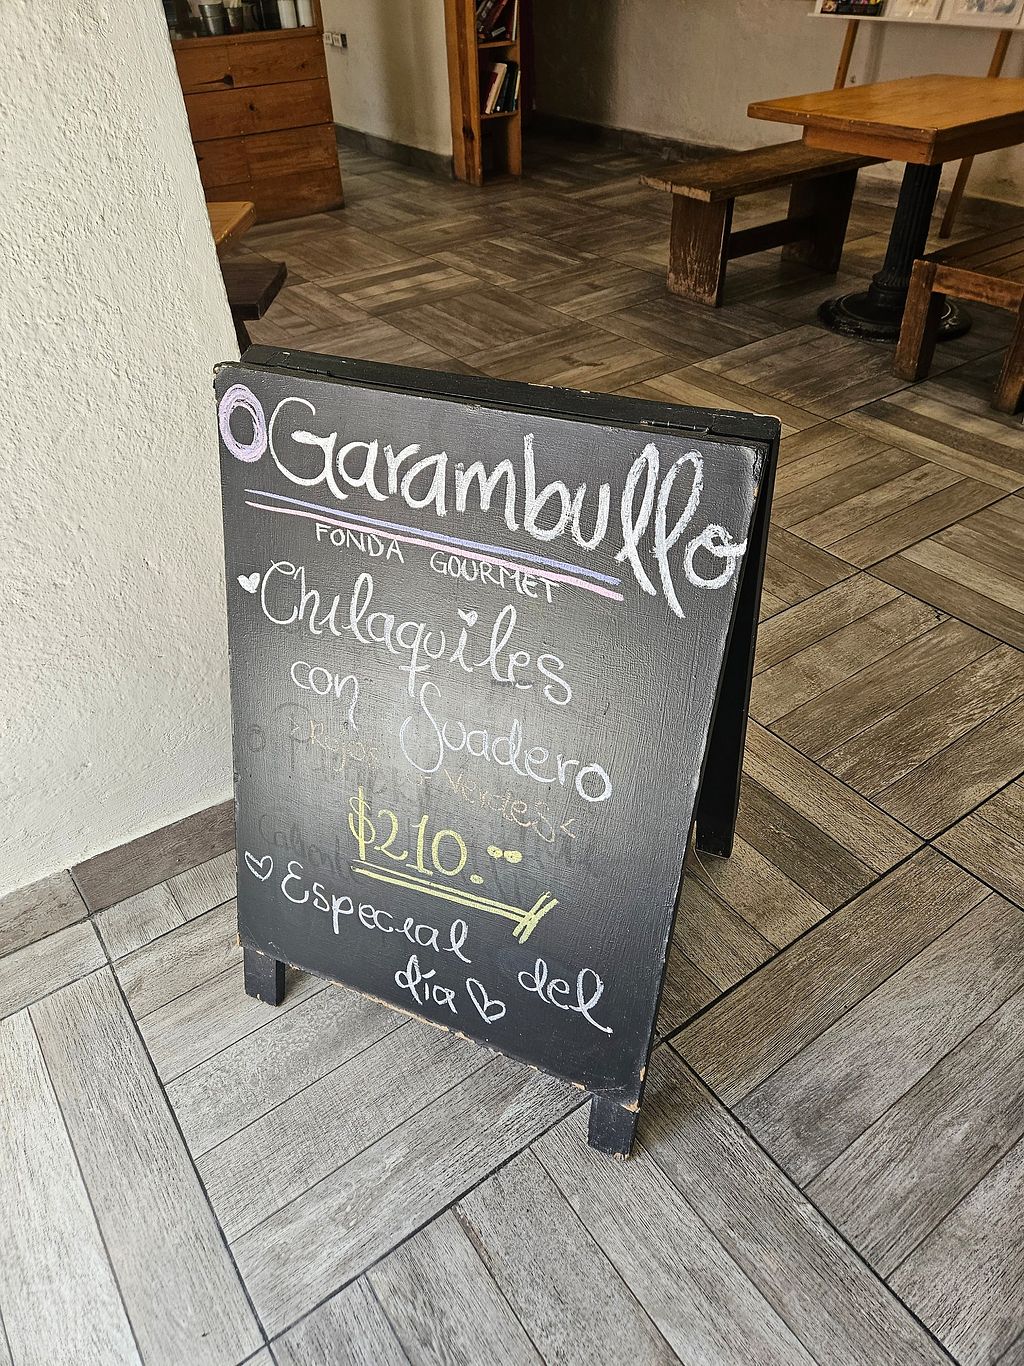 Garambullo
FONDA GOURMET
Chilaquiles
con Suadero
Rojos Verdes
$210.
Especial del
día